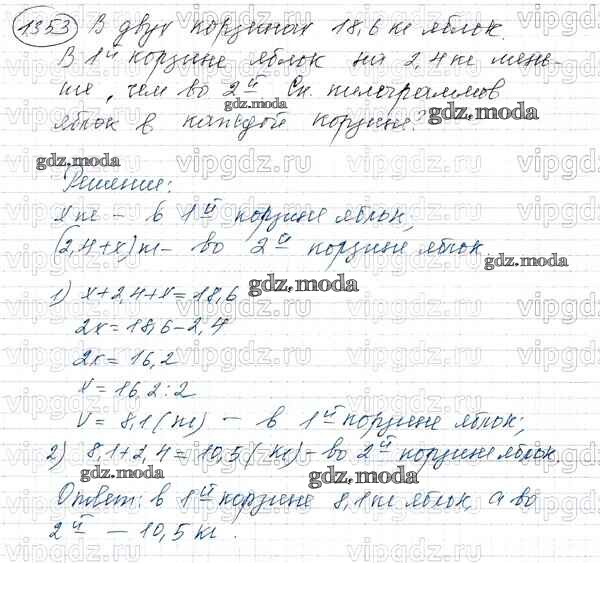 1353 В двух корзинах 18,6 кг яблок.
В 1й корзине яблок на 2,4 кг мень-
ше, чем во 2й Ск. килограммов
яблок в каждой корзине?
Решение:
x кг – в 1й корзине яблок;
(2,4+x) кг – во 2й корзине яблок.
1) x+2,4+x=18,6
2x=18,6-2,4
2x=16,2
x=16,2:2
x=8,1(кг) – в 1й корзине яблок;
2) 8,1+2,4=10,5(кг)– во 2й корзине яблок.
Ответ: в 1й корзине 8,1 кг яблок, а во
2й – 10,5 кг.
gdz.moda
vipgdz.ru